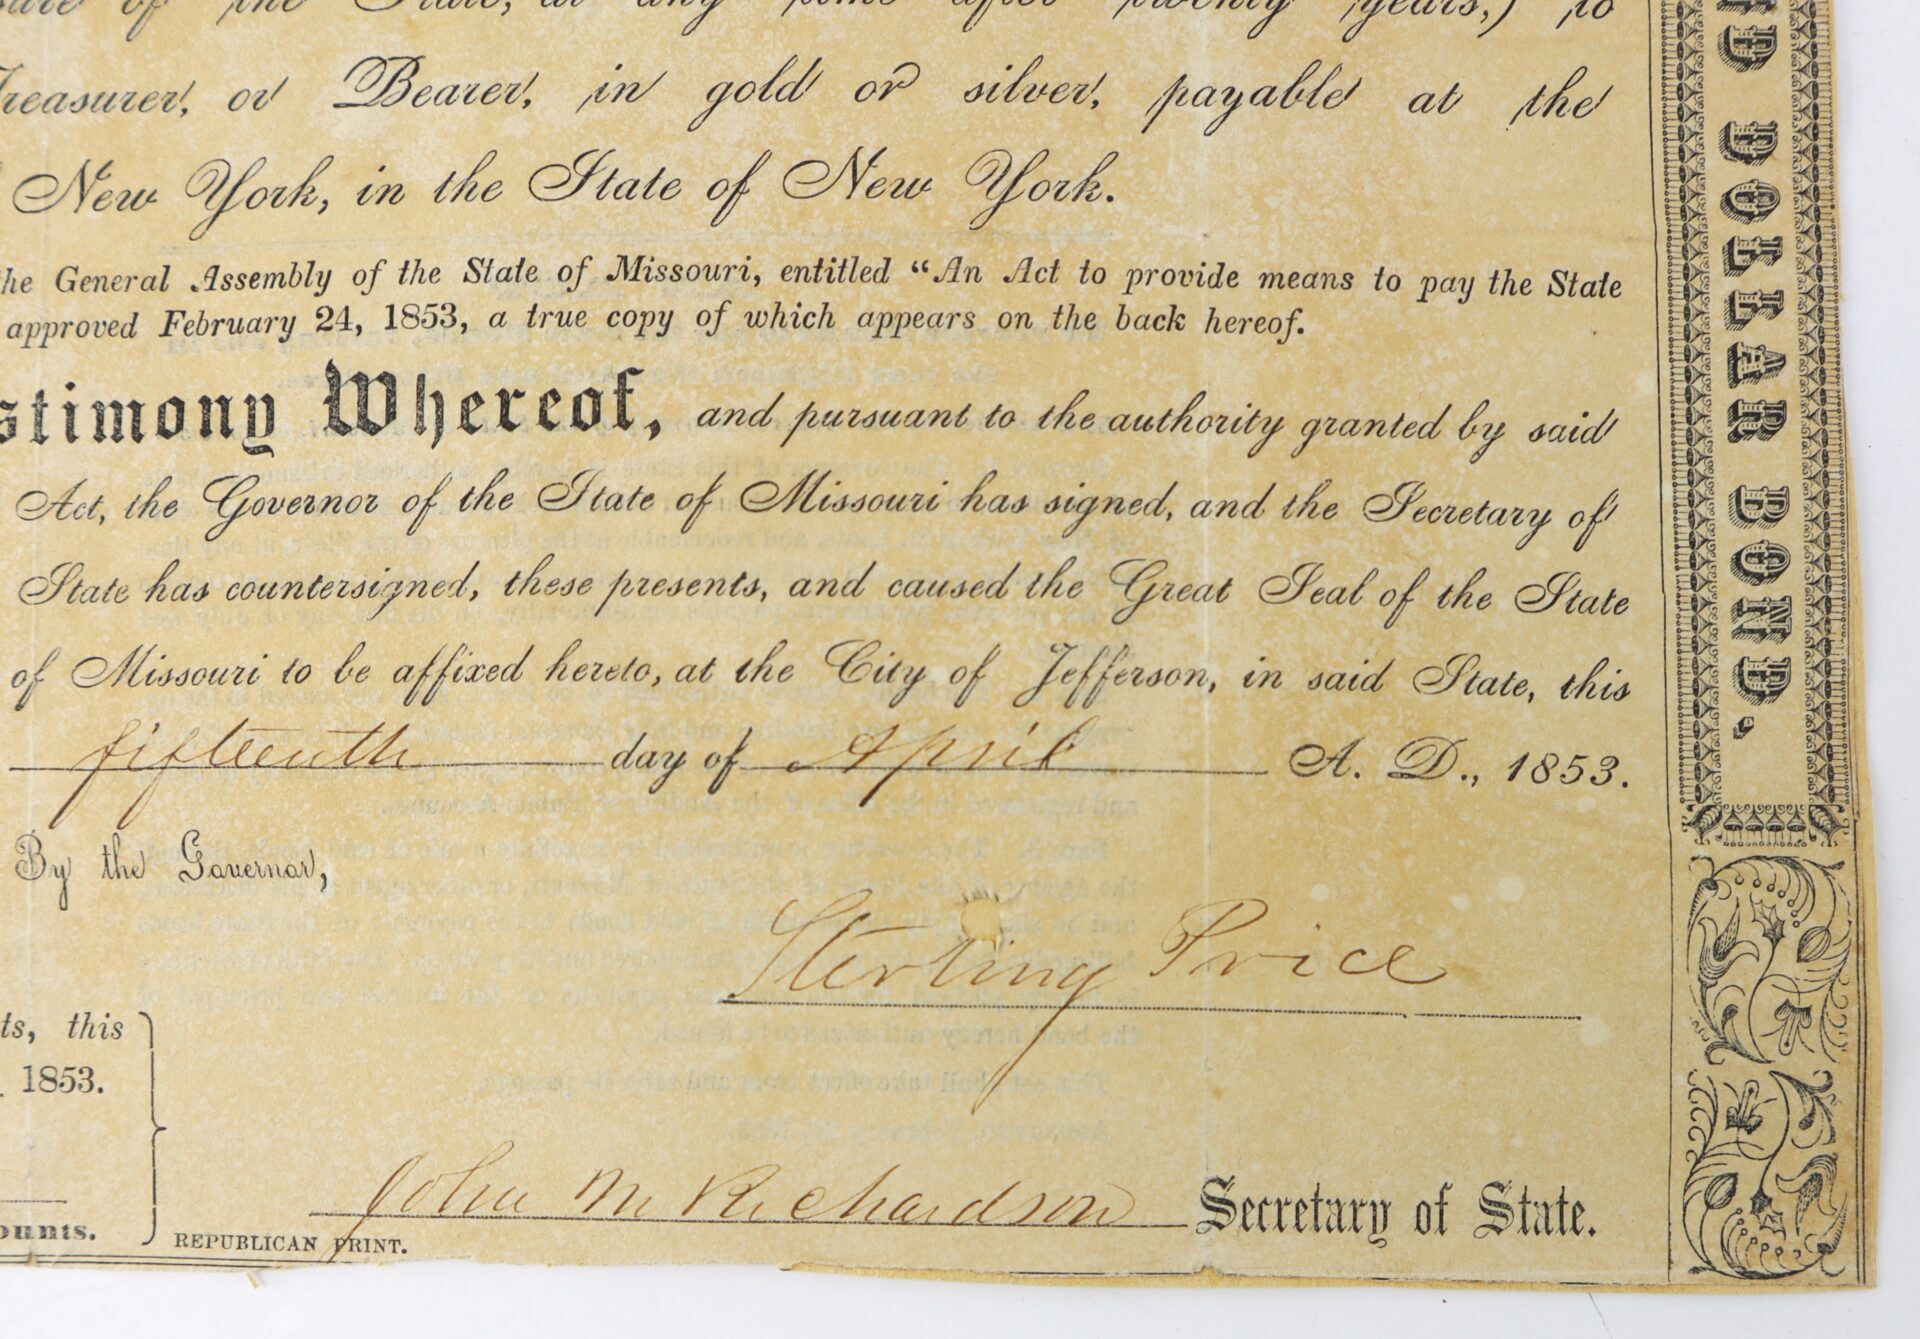 of the State, at any time after twenty years,) to
Treasurer, or Bearer, in gold or silver, payable at the
New York, in the State of New York.
the General Assembly of the State of Missouri, entitled "An Act to provide means to pay the State
approved February 24, 1853, a true copy of which appears on the back hereof.
stimony Whereof, and pursuant to the authority granted by said
Act, the Governor of the State of Missouri has signed, and the Secretary of
State has countersigned, these presents, and caused the Great Seal of the State
of Missouri to be affixed hereto, at the City of Jefferson, in said State, this
fifteenth day of April A. D., 1853.
By the Governor,
Sterling Price
ts, this
1853.
John M Richardson Secretary of State.
ounts.
REPUBLICAN PRINT.
D DOLLAR BOND.